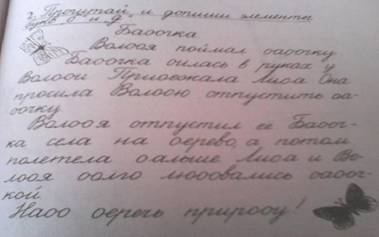 2. Прочитай и допиши элементы
букв б и д.
Баоочка
Волооя поймал оаоочку.
Баоочка оилась в руках у
Волоои. Приоежала Лиса. Она
просила Волоою отпустить оа-
оочку.
Волооя отпустил её. Баооч-
ка села на оерево, а потом
полетела оальше. Лиса и Во-
лооя оолго люоовались оаооч-
кой.
Наоо оеречь прирооу!